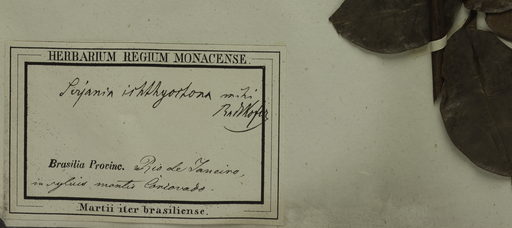 HERBARIUM REGIUM MONACENSE.
Serjania ichthyoctona mihi
Radlkofer
Brasilia Provinc. Rio de Janeiro,
in sylvis montis Corcovado.
Martii iter brasiliense.